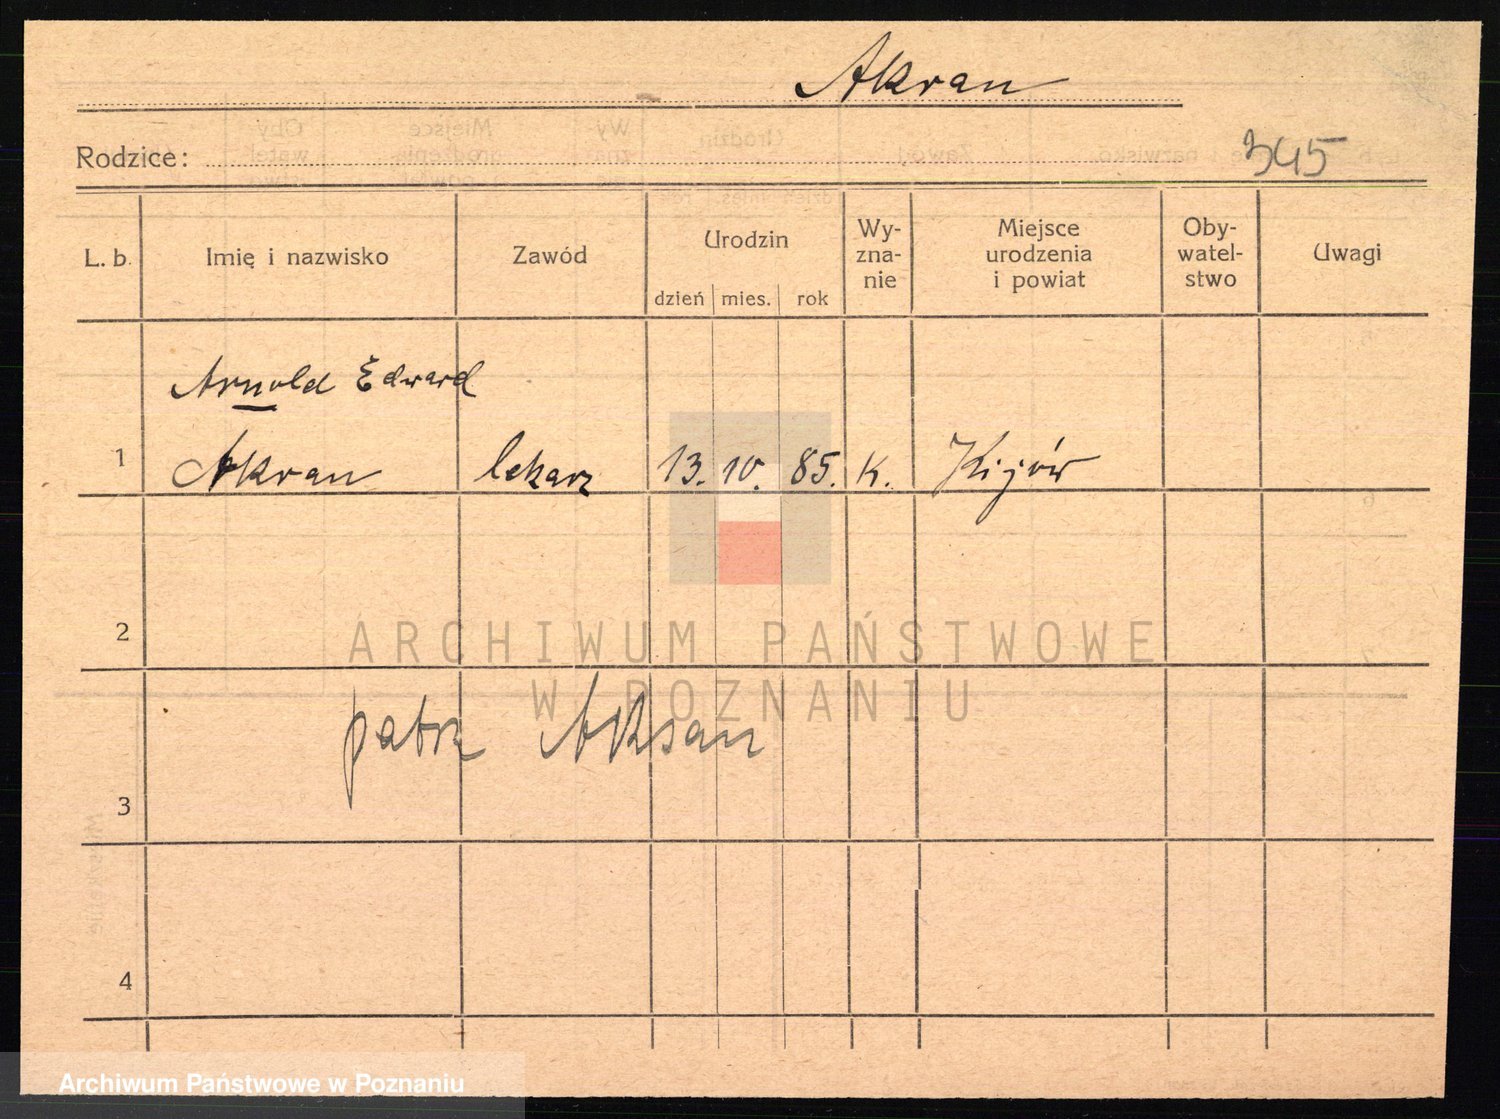 Akran
Rodzice:
345
L. b. Imię i nazwisko Zawód Urodzin dzień mies. rok Wy-zna-nie Miejsce urodzenia i powiat Oby-watel-stwo Uwagi
Arnold Edward
1 Akran lekarz 13. 10. 85. K. Kijów
2
ARCHIWUM PAŃSTWOWE
W POZNANIU
patrz Aksan
3
4
Archiwum Państwowe w Poznaniu